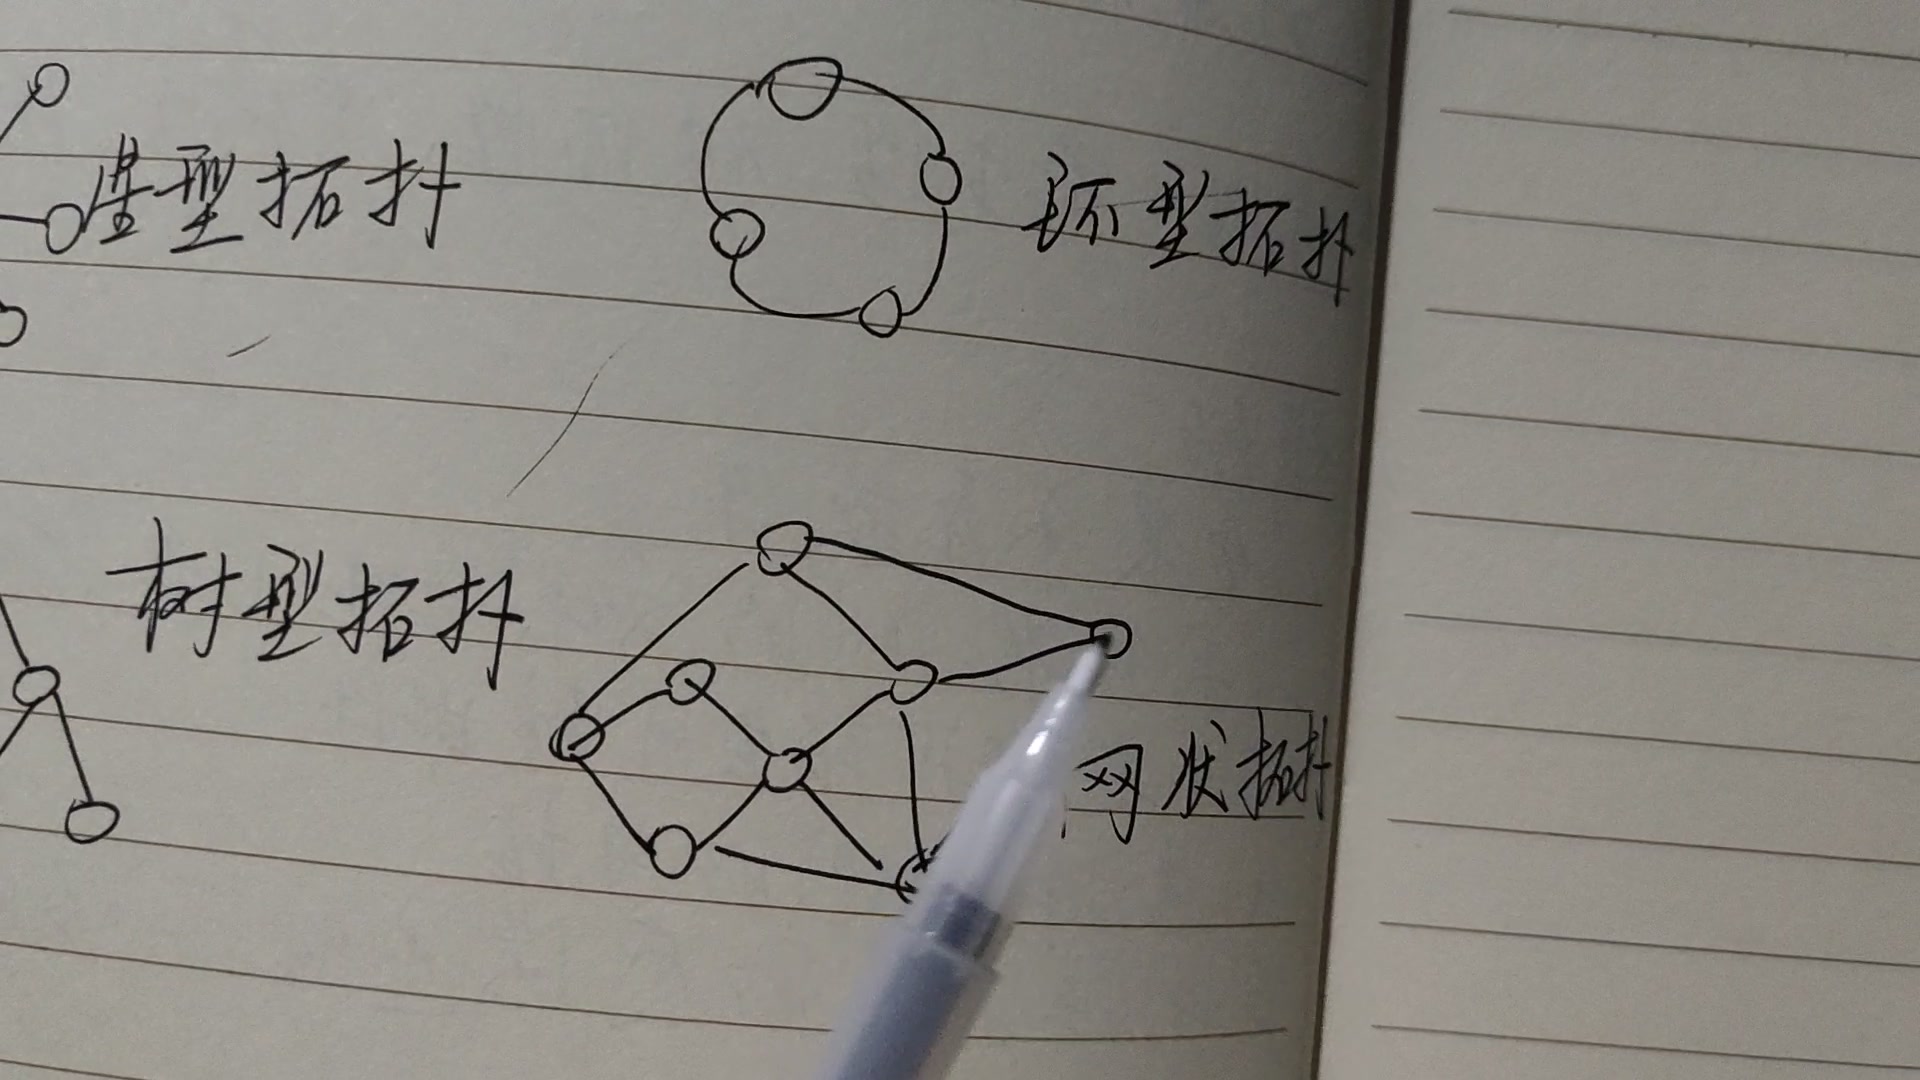 星型拓扑
环型拓扑
树型拓扑
网状拓扑